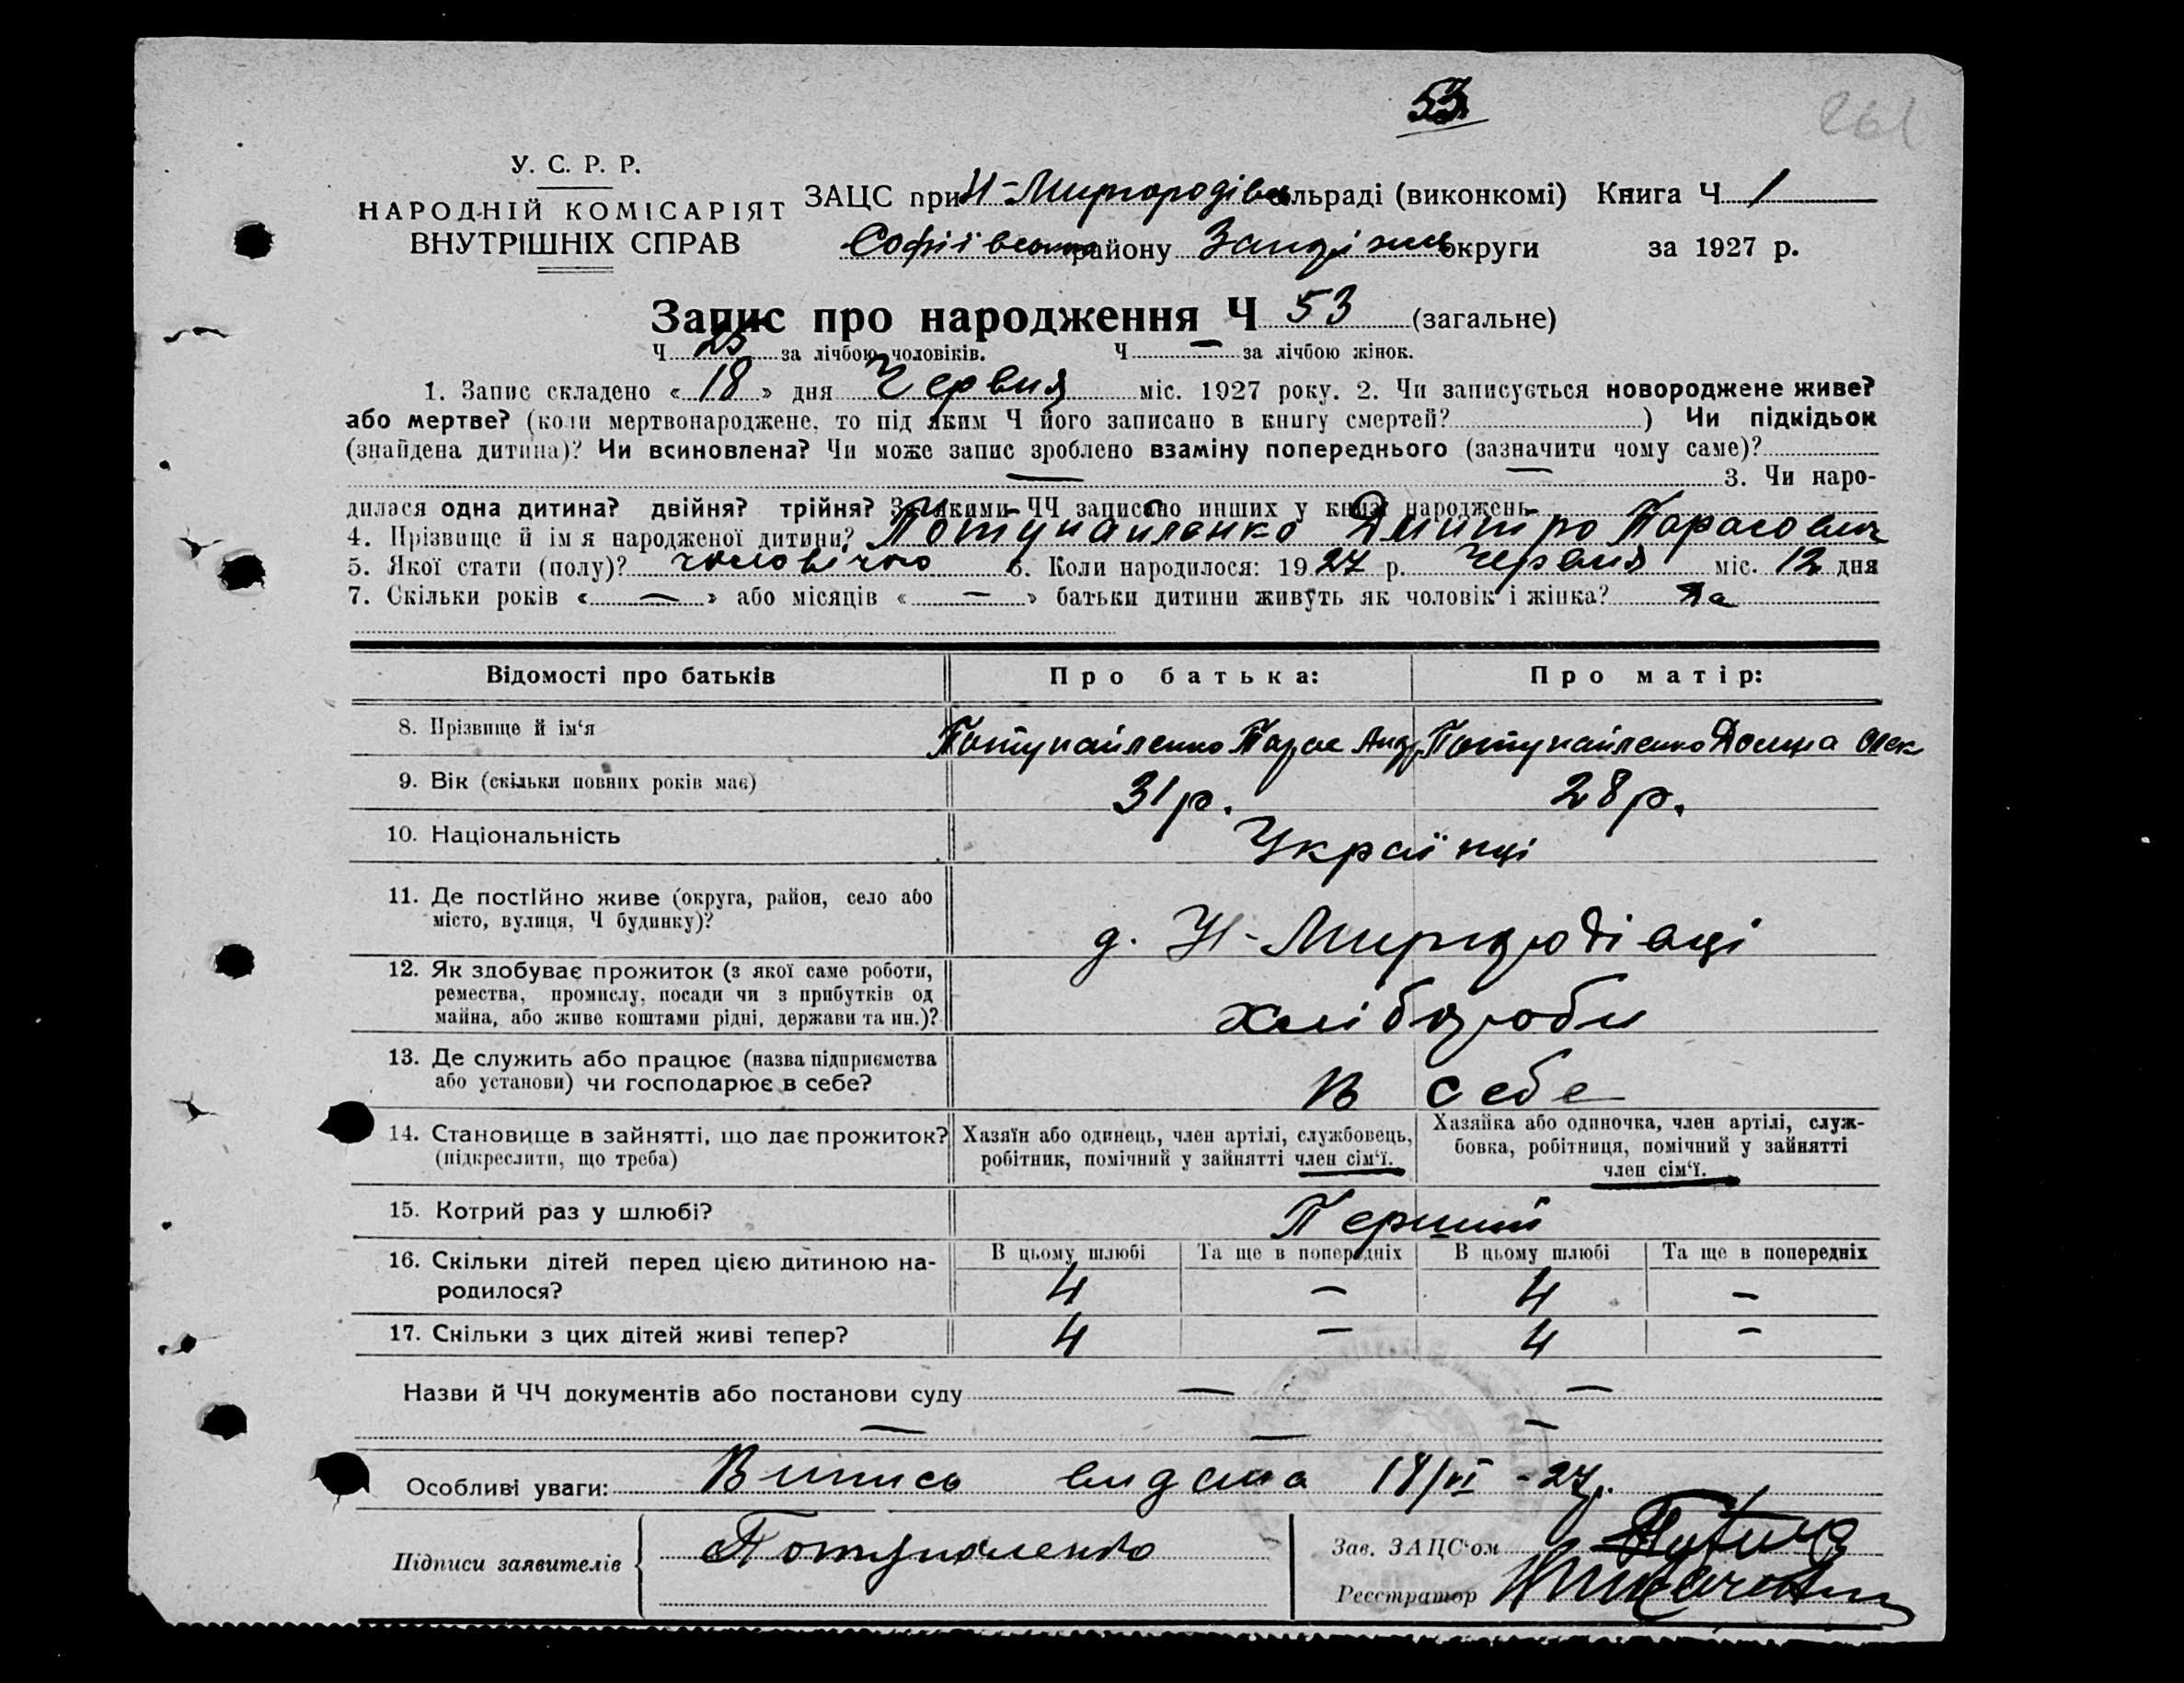 53
261
У. С. Р. Р.
НАРОДНІЙ КОМІСАРІЯТ
ВНУТРІШНІХ СПРАВ
ЗАЦС при Н-Миргородівс сільраді (виконкомі) Книга Ч 1
Софіївському району Запоріжськ округи за 1927 р.
Запис про народження Ч 53 (загальне)
Ч 25 за лічбою чоловіків. Ч — за лічбою жінок.
1. Запис складено «18» дня Червня міс. 1927 року. 2. Чи записується новороджене живе?
або мертве? (коли мертвонароджене, то під яким Ч його записано в книгу смертей? ) Чи підкідьок
(знайдена дитина)? Чи всиновлена? Чи може запис зроблено взаміну попереднього (зазначити чому саме)?
— — 3. Чи наро-
дилася одна дитина? двійня? трійня? З якими ЧЧ записано инших у книзі народжень
4. Прізвище й ім я народженої дитини? Потупайленко Дмитро Парасович
5. Якої стати (полу)? чоловічого 6. Коли народилося: 1927 р. Червня міс. 12 дня
7. Скільки років «—» або місяців «—» батьки дитини живуть як чоловік і жінка? Да
Відомості про батьків Про батька: Про матір:
8. Прізвище й ім‘я Потупайленко Парас Андр Потупайленко Домна Олек
9. Вік (скільки повних років має) 31 р. 28 р.
10. Національність Українці
11. Де постійно живе (округа, район, село або
місто, вулиця, Ч будинку)? д. Н-Миргородівці
12. Як здобуває прожиток (з якої саме роботи,
ремества, промислу, посади чи з прибутків од
майна, або живе коштами рідні, держави та ин.)? хлібороби
13. Де служить або працює (назва підприємства
або установи) чи господарює в себе? в себе
14. Становище в зайнятті, що дає прожиток?
(підкреслити, що треба)
Хазяїн або одинець, член артілі, службовець,
робітник, помічний у зайнятті член сім‘ї.
Хазяйка або одиночка, член артілі, служ-
бовка, робітниця, помічний у зайнятті
член сім‘ї.
15. Котрий раз у шлюбі? Перший
В цьому шлюбі Та ще в попередніх В цьому шлюбі Та ще в попередніх
16. Скільки дітей перед цією дитиною на-
родилося? 4 — 4 —
17. Скільки з цих дітей живі тепер? 4 — 4 —
Назви й ЧЧ документів або постанови суду — —
— — —
Особливі уваги: Випись видана 18/VI -27р.
Підписи заявителів Потупаленко
Зав. ЗАЦС‘ом
Реєстратор